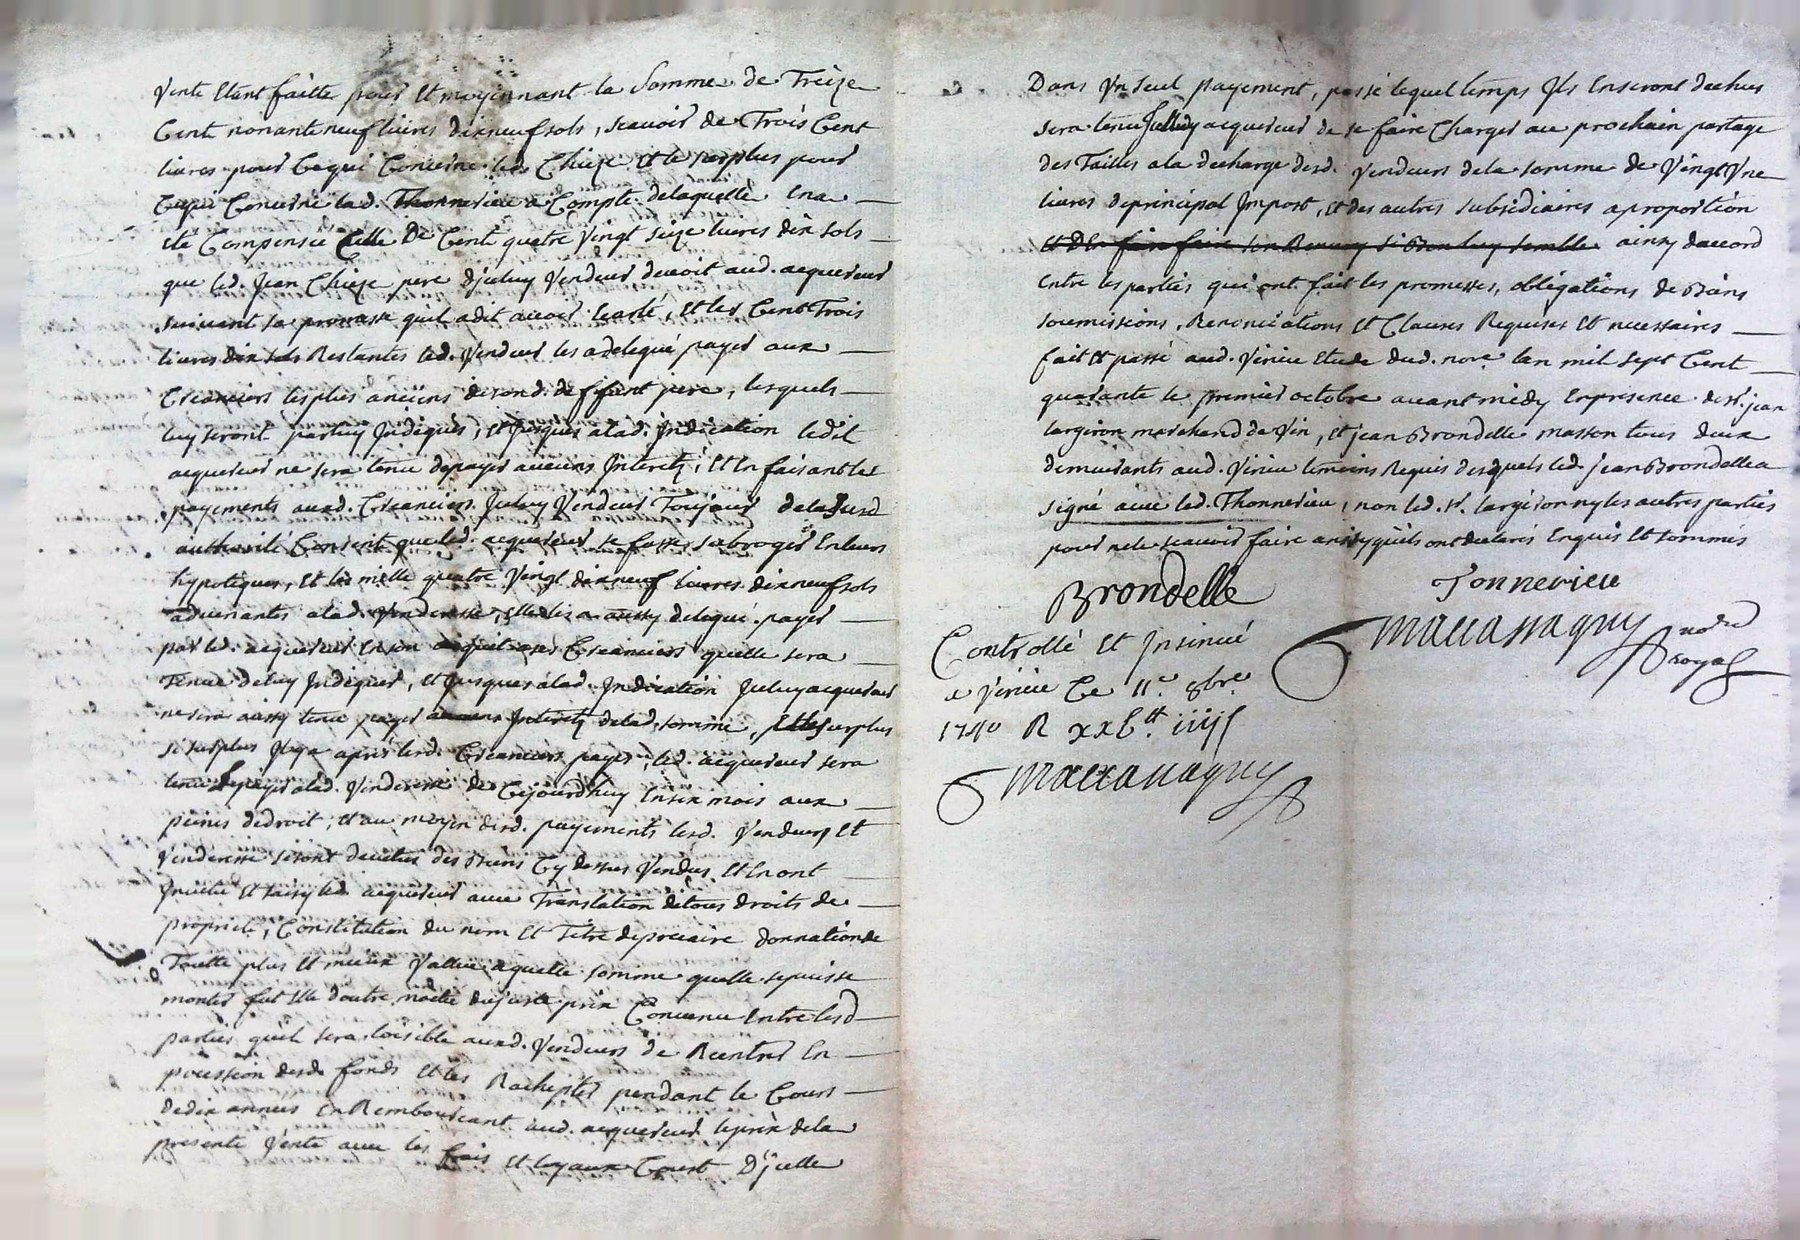 Vente Etant faitte pour Et moyennant la Somme de Treize
Cent nonante neuf livres dixneuf sols, scavoir de Trois Cent
livres pour Cequi Concerne led. Chieze Et le surplus pour
Cequi Concerne lad. Thonneriere a Compte delaquelle Ena
été Compensée Celle De Cent quatre Vingt seize livres dix sols
que led. Jean Chieze pere d'jceluy Vendeur devoit aud. acquereur
suivant sa promesse quil a dit avoir Ecarté, Et les Cent Trois
livres dix sols Restantes led. Vendeur les a delegué payer aux
Creanciers les plus anciens de sond. deffunt pere, lesquels
luy seront par luy Jndiqués, Et jusques alad. Jndication led.
acquereur ne sera tenu depayer aucuns Jnterets, Et En faisant les
payements auxd. Creanciers Jceluy Vendeur Toujours delad.
authorité Consent que led. acquereur se fasse subroger En leurs
hypoteques, Et les mille quatre Vingt dix neuf livres dixneuf sols
advenants alad. Venderesse, Elle les a aussy delegué payer
par led. acquereur En son acquit a ses Creanciers quelle sera
Tenue deluy Jndiquer, Et Jusques alad. Jndication Jceluy acquereur
ne sera aussy tenu payer aucuns Jnterets delad. somme, Et le surplus
si surplus Jl y a aprés lesd. Creanciers payés, led. acquereur sera
tenu depayer alad. Venderesse de Cejourdhuy En six mois aux
peines de droit, Et au moyen desd. payements lesd. Vendeurs Et
Venderesse seront devetus des Biens Cy dessus Vendus, Et En ont
Jnvetu Et saisy led. acquereur avec Translation de tous droits de
proprieté, Constitution du nom Et Titre de precaire donnation de
Toutte plus Et mieux Vallue a quelle somme quelle se puisse
monter fut Elle d'outre moitié du juste prix Convenu Entre lesd.
parties quil sera loisible auxd. Vendeurs de Rentrer En
possession desd. fonds Et les Rachepter pendant le Cours
de dix années En Remboursant aud. acquereur le prix de la
presente Vente avec les frais Et loyaux Coust D'jcelle
Dans Un seul payement, passé lequel temps Jls En seront dechus
sera tenu Jceluy acquereur de se faire Charger au prochain partage
des Tailles ala decharge desd. Vendeurs de la somme de Vingt Une
livres deprincipal Jmpost, Et des autres subsidiaires a proportion
Et D'En faire faire ainsy d'accord
Entre les parties qui ont fait les promesses, obligations de Biens
soumissions, Renonciations Et Clauses Requises Et necessaires
fait Et passé aud. Virieu Etude dud. nore. lan mil sept Cent
quarante le premier octobre avant midy En presence de sr. jean
largiron marchand de Vin, Et jean Brondelle masson tous deux
demeurants aud. Virieu temoins Requis desquels led. jean Brondelle a
signé avec led. Thonnerieu, non led. sr. largiron ny les autres parties
pour ne le scavoir faire ainsy quils ont declarés Enquis Et sommés
Brondelle
Tonnerieu
Controllé Et Jnsinué
a Virieu Ce 11e. 8bre
1740 R
nore
royal